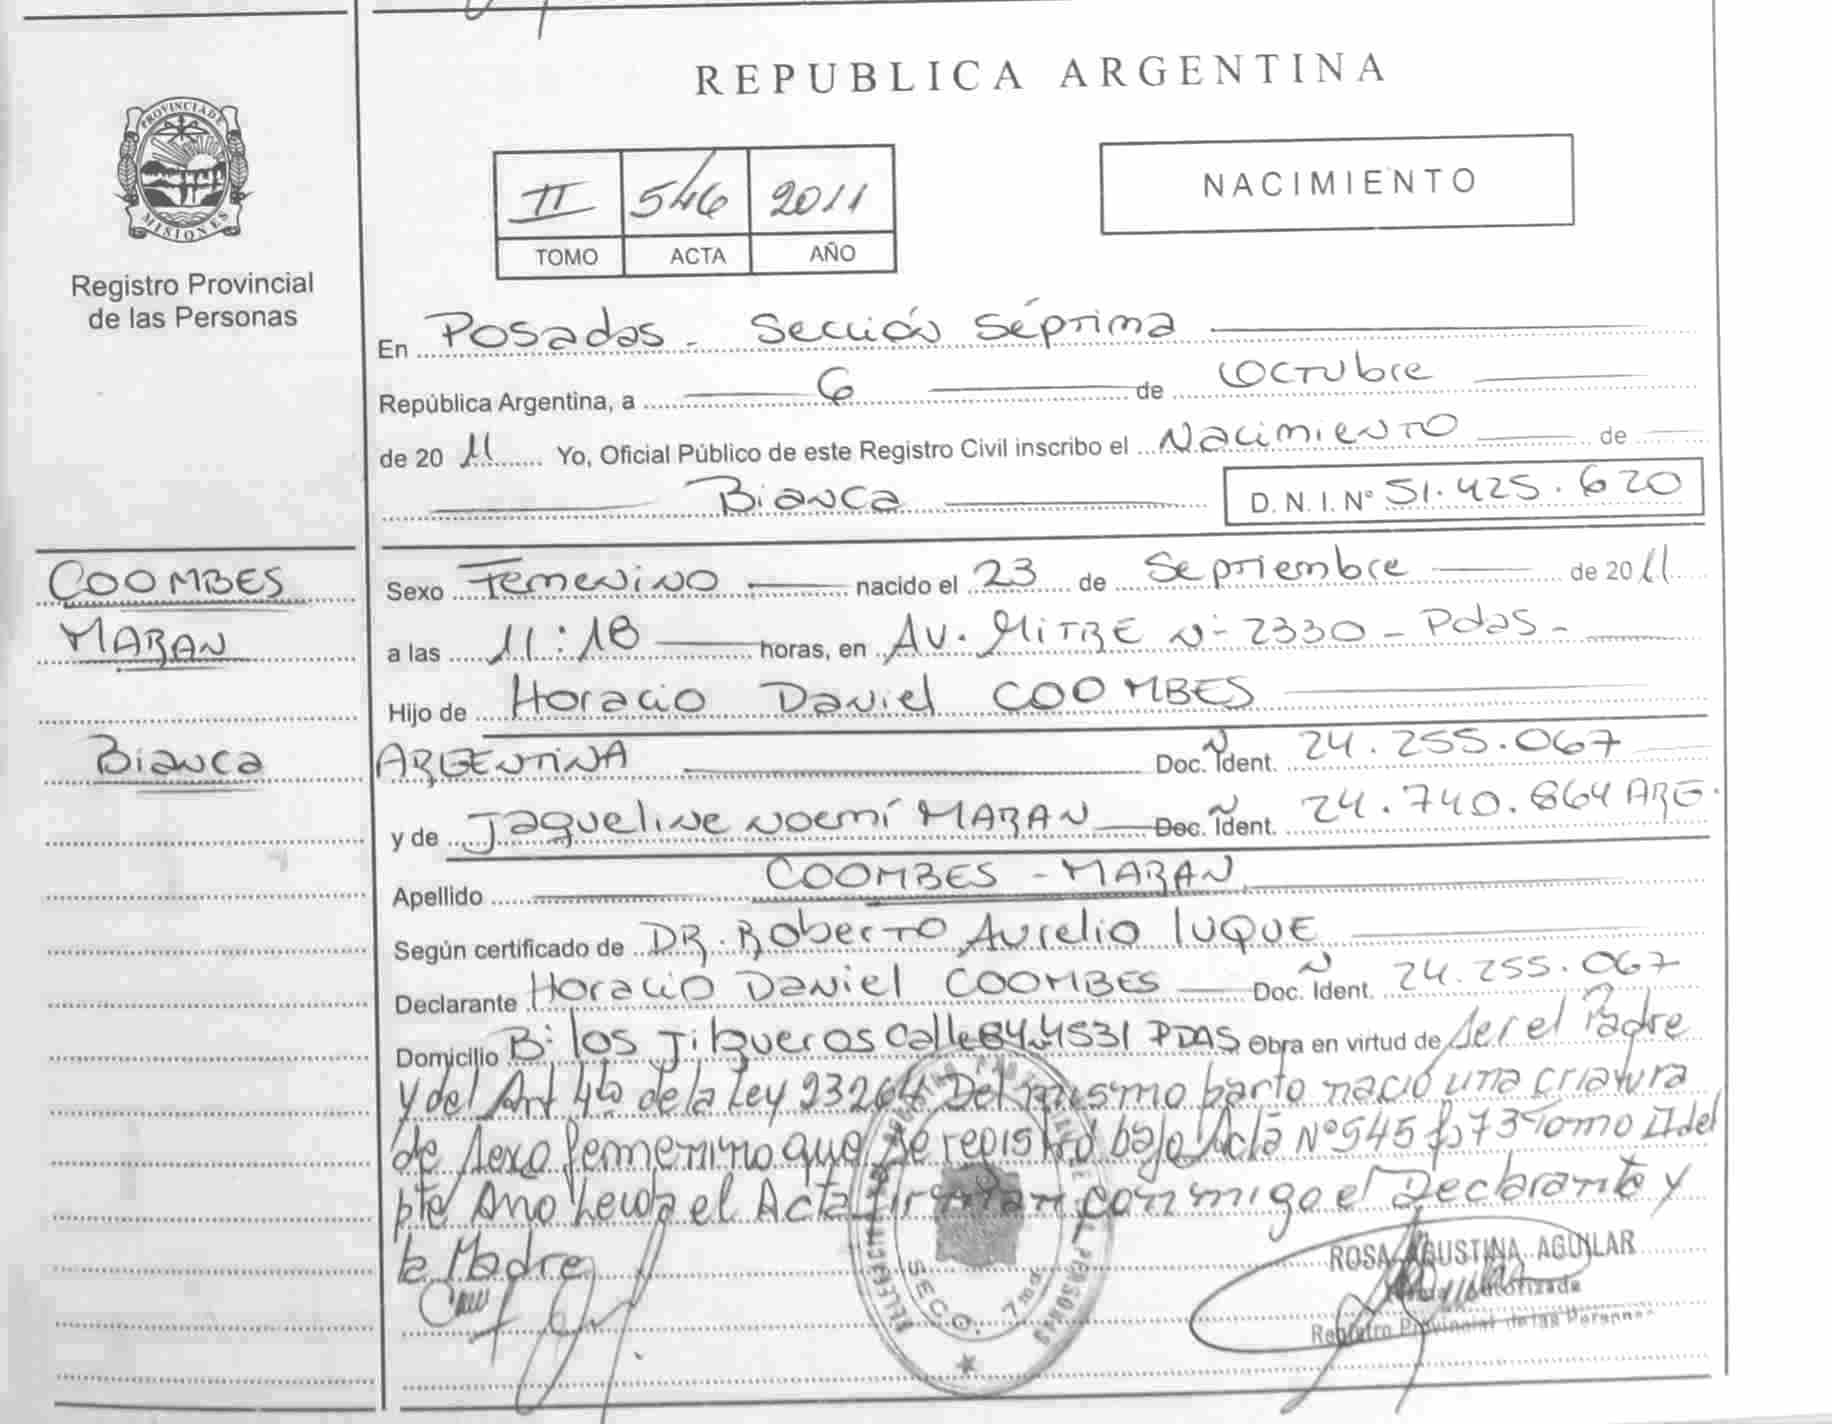 REPUBLICA ARGENTINA
PROVINCIA DE
MISIONES
Registro Provincial
de las Personas
II 546 2011
TOMO ACTA AÑO
NACIMIENTO
En Posadas - Sección Séptima
República Argentina, a 6 de Octubre
de 2011 Yo, Oficial Público de este Registro Civil inscribo el Nacimiento de
Bianca D. N. I. Nº 51.425.620
COOMBES
MARAN
Bianca
Sexo Femenino nacido el 23 de Septiembre de 2011
a las 11:18 horas, en Av. MITRE Nº 2330 - Pdas -
Hijo de Horacio Daniel COOMBES
ARGENTINA Doc. Ñ Ident. 24.255.067
y de Jaqueline Noemí MARAN Doc. Ñ Ident. 24.740.864 ARG.
Apellido COOMBES - MARAN
Según certificado de DR. Roberto Aurelio LUQUE
Declarante Horacio Daniel COOMBES Doc. Ñ Ident. 24.255.067
Domicilio Bº los Jilgueros Calle 84 4531 PDAS Obra en virtud de ser el Padre
y del Art 4to de la Ley 23264 Del mismo parto nació una criatura
de sexo femenino que se registró bajo Acta Nº 545 fo 73 Tomo II del
pte Año Leida el Acta firman conmigo el Declarante y
la Madre
SECC. 7ma
ROSA AGUSTINA AGUILAR
Autorizada
Registro Provincial de las Personas